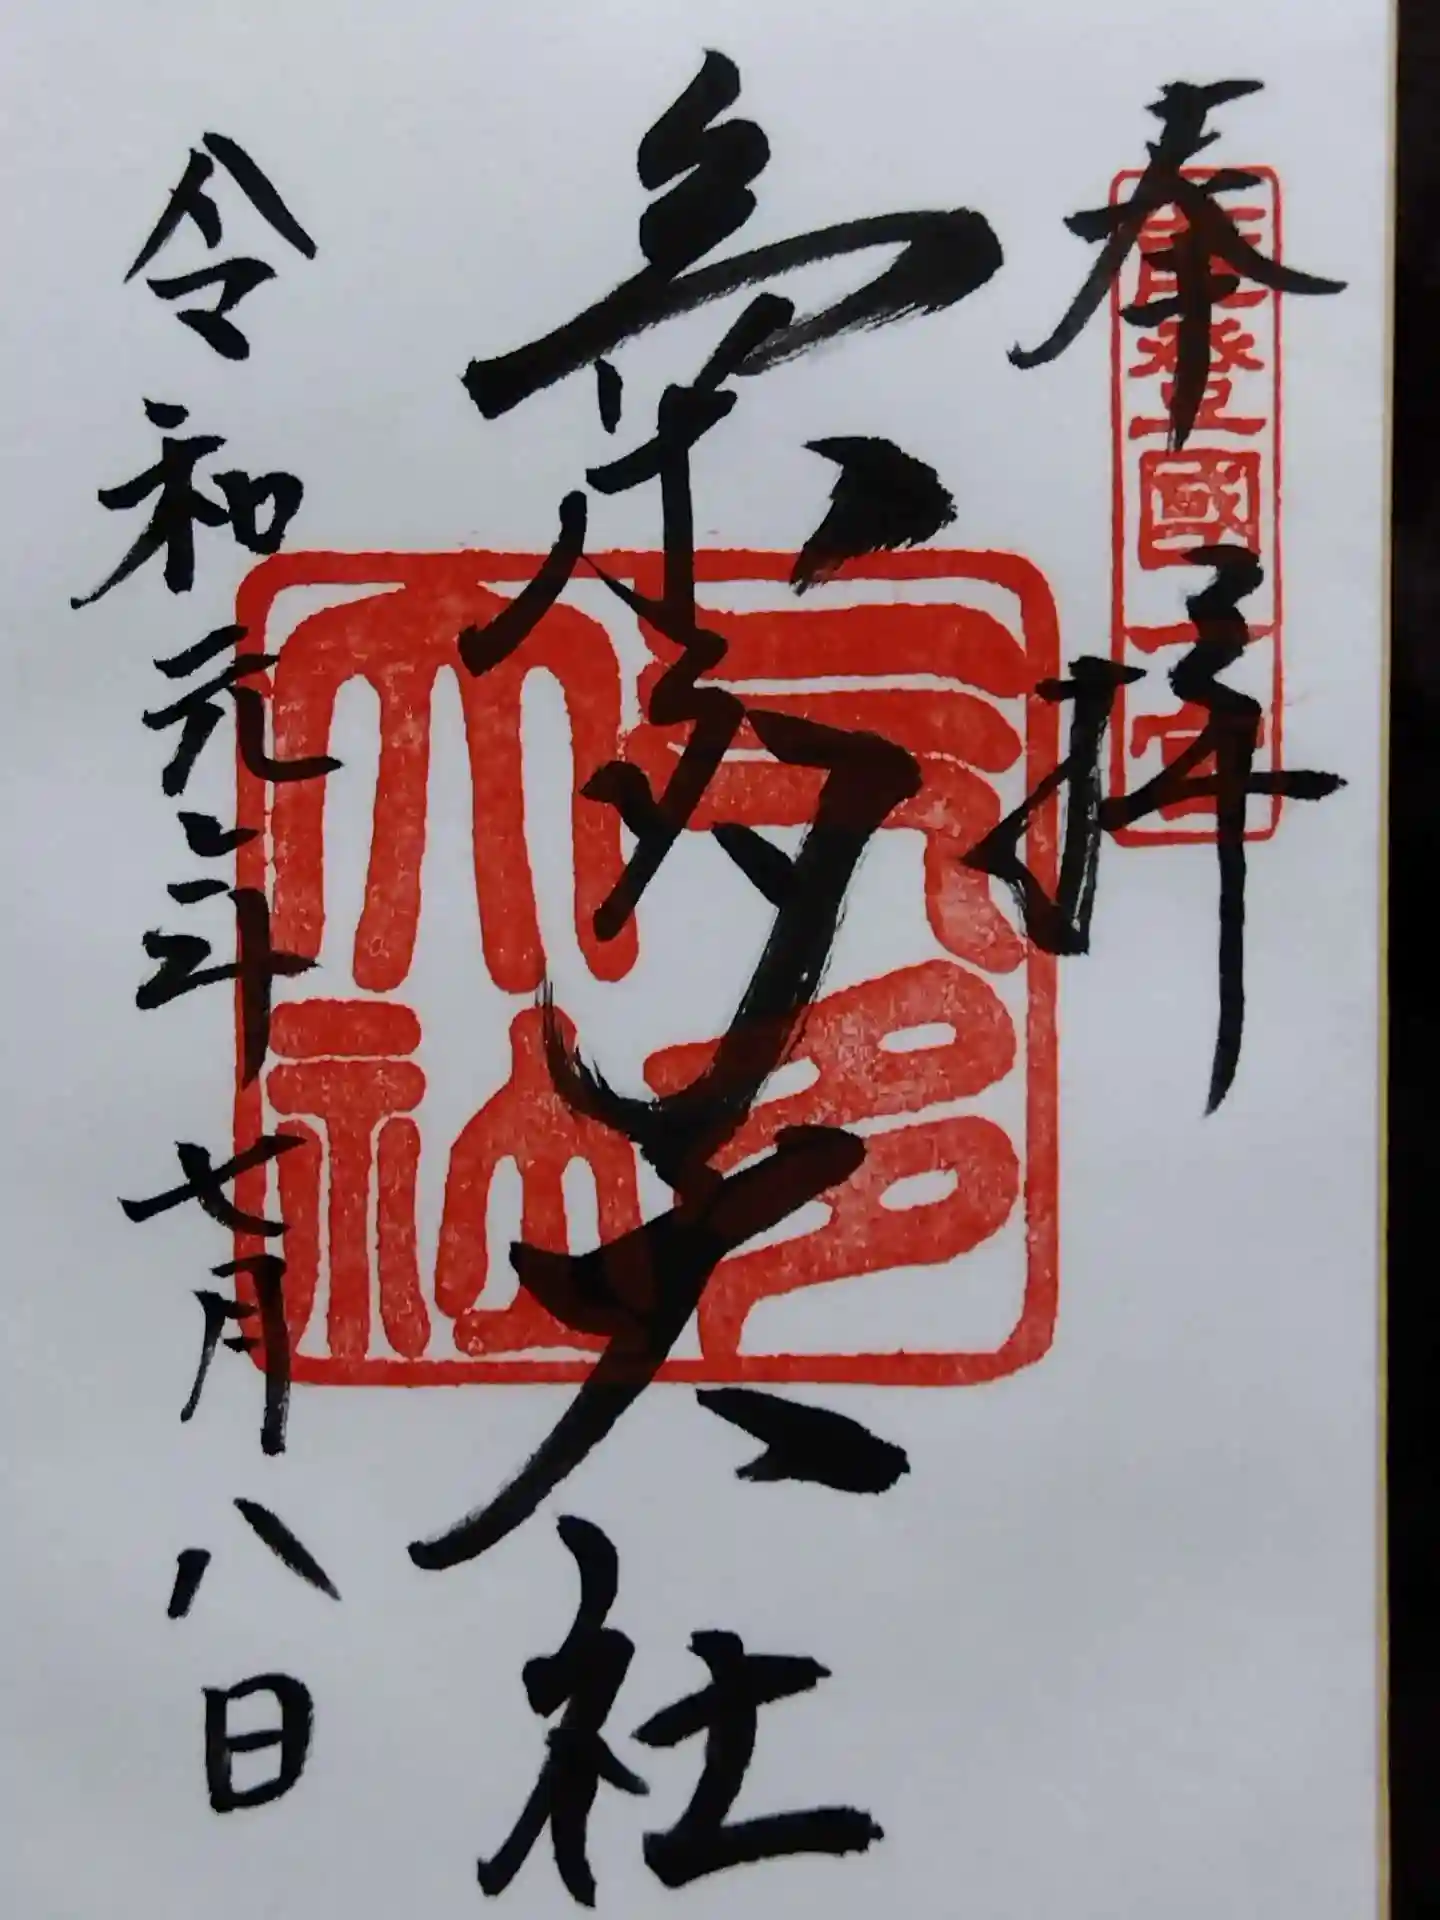 奉拝
能登國一宮
氣多大社
氣多大社
令和元年七月八日